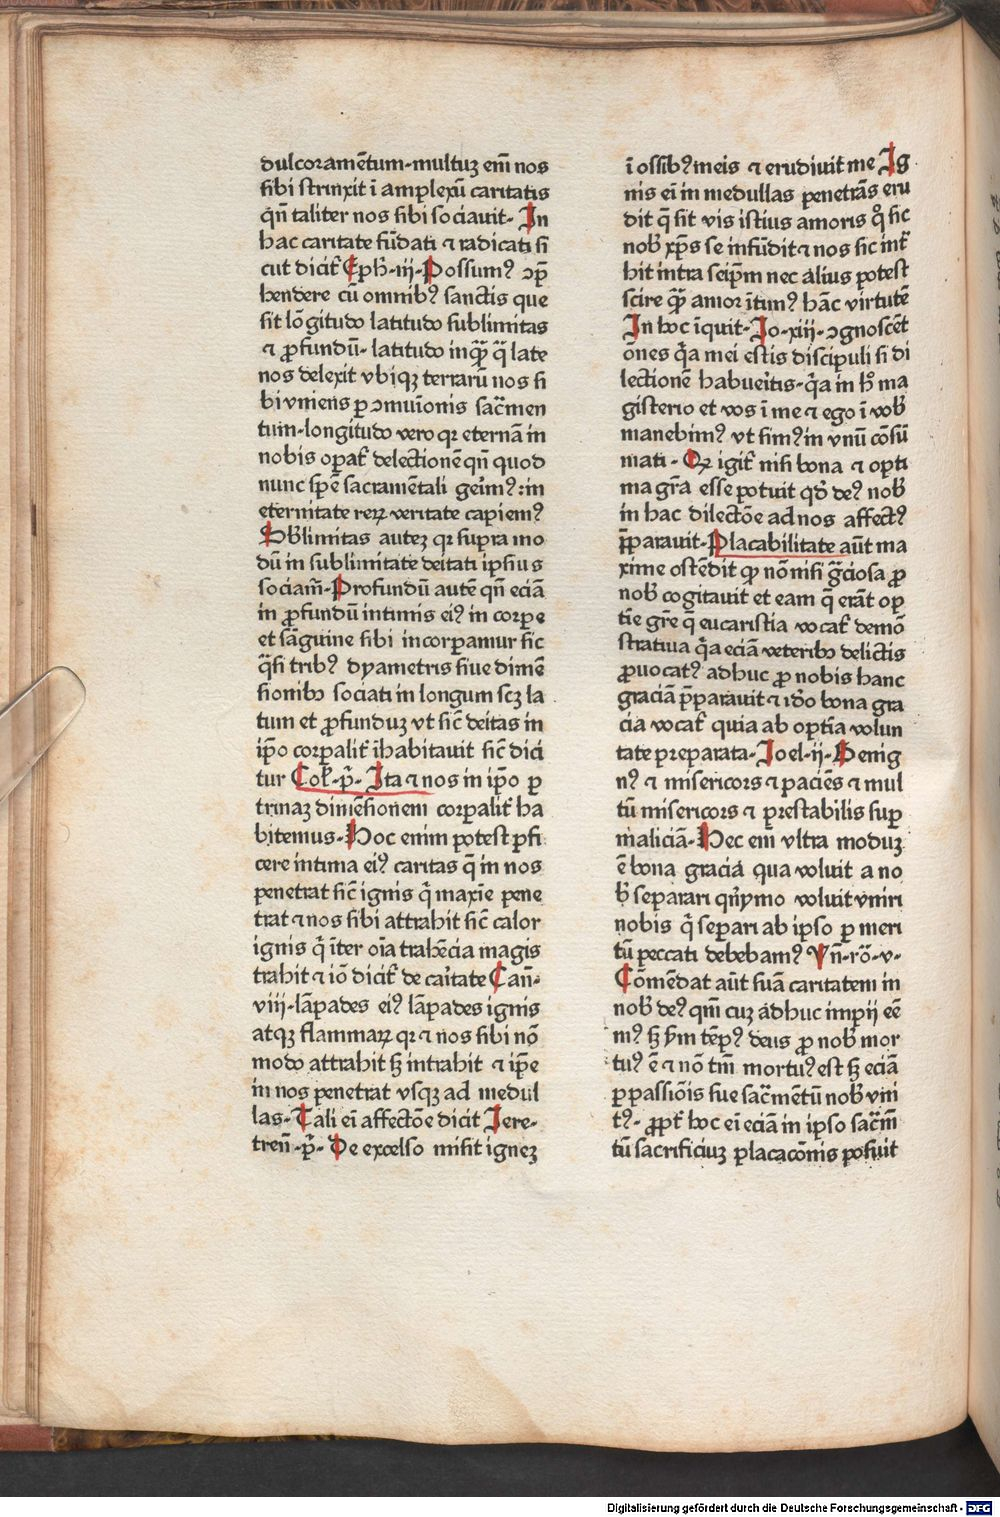 dulcoramētum·multuꝫ em̄ nos
sibi strinxit ī amplexū caritatis
qn̄ taliter nos sibi sociauit· In
hac caritate fūdati ⁊ radicati si
cut dicit᷑ Eph̄·iij·Possumꝰ ↄp̄
hendere cū omnibꝰ sanctis que
sit lōgitudo latitudo sublimitas
⁊ ꝓfundū· latitudo inqᷓꝫ qͣ late
nos delexit vbiqꝫ terrarū nos si
bi vniens ꝑ ↄmuīonis sacͣmen
tum·longitudo vero qꝛ eternā in
nobis oꝑat᷑ delectionē qn̄ quod
nunc spē sacramētali gerimꝰ:in
eternitate reꝝ veritate capiemꝰ
Sublimitas auteꝫ qꝛ supra mo
dū in sublimitate deitati ipsius
sociam̄·Profundū autē qn̄ eciā
in ꝓfundū intimis eiꝰ in corpe
et sāguine sibi incorpamur sic
qͣsi tribꝰ dyametris siue dimē
sionibꝫ sociati in longum scꝫ la
tum et ꝓfunduꝫ vt sic̄ deitas in
ip̄o corꝑalit᷑ īhabitauit sic̄ dici
tur Col̄·pͣ· Ita ⁊ nos in ip̄o ꝑ
trinaꝫ dimēsionem corꝑalit᷑ ha
bitemus·Hoc enim potest ꝑfi
cere intima eiꝰ caritas qͣ in nos
penetrat sic̄ ignis qͥ maxīe pene
trat ⁊ nos sibi attrahit sic̄ calor
ignis qͥ īter oīa trahēcia magis
trahit ⁊ iō dicit᷑ de caritate Can̄·
viii·lāpades eiꝰ lāpades ignis
atqꝫ flammaꝝ qꝛ ⁊ nos sibi nō
modo attrahit sꝫ intrahit ⁊ ip̄e
in nos penetrat vsqꝫ ad medul
las·Tali ei̅ affectōe dicit Jere·
tren̄·pͣ· De excelso misit igneꝫ
ī ossibꝰ meis ⁊ erudiuit me Ig
nis ei̅ in medullas penetrās eru
dit qͣ sit vis istius amoris qͦ sic
nob̄ xp̄s se infūdit ⁊ nos sic int᷑
hit intra seip̄m nec alius potest
scire qᷓꝫ amor ītimꝰ hāc virtutē
In hoc īquit·Jo·xiii·ↄgnoscēt
ōnes qͥa mei estis discipuli si di
lectionē habueritis·qͥa in hͦ ma
gisterio et vos ī me ⁊ ego ī vob̄
manebimꝰ vt simꝰ in vnū cōsū
mati· Qꝛ igit᷑ nisi bona ⁊ opti
ma gr̄a esse potuit qd̄ deꝰ nob̄
in hac dilectōe ad nos affectꝰ
p̄parauit·Placabilitate aūt ma
xime ostēdit qꝫ nō nisi gͣciosa ꝓ
nob̄ cogitauit et eam q̄ erāt op
tīe gr̄e q̄ eucaristia vocat᷑ demō
stratiua qͥa eciā veteribꝫ delictis
ꝓuocatꝰ adhuc ꝓ nobis hanc
graciā p̄parauit ⁊ idō bona gra
cia vocat᷑ quia ab optīa volun
tate preparata·Joel·ii·Benig
nꝰ ⁊ misericors ⁊ paciēs ⁊ mul
tū misericors ⁊ prestabilis suꝑ
maliciā·Hec em̄ vltra moduꝫ
ē bona gracia qua voluit a no
b̄ separari qn̄ymo voluit vniri
nobis qͥ separi ab ipso ꝑ meri
tū peccati debebamꝰ Vn̄·rō·v·
Cōmēdat aūt suā caritatem in
nob̄ deꝰ qm̄ cuꝫ adhuc impij eē
mꝰ sꝫ ẏm tēpꝰ deus ꝓ nob̄ mor
tuꝰ ē ⁊ nō tm̄ mortuꝰ est sꝫ eciā
ꝑ passiōis sue sacͣmētū nob̄ vni
tꝰ· ꝓpt᷑ hoc ei̅ eciā in ipso sacͣm̄
tū sacrificiuꝫ placacōnis posuit
Digitalisierung gefördert durch die Deutsche Forschungsgemeinschaft - DFG